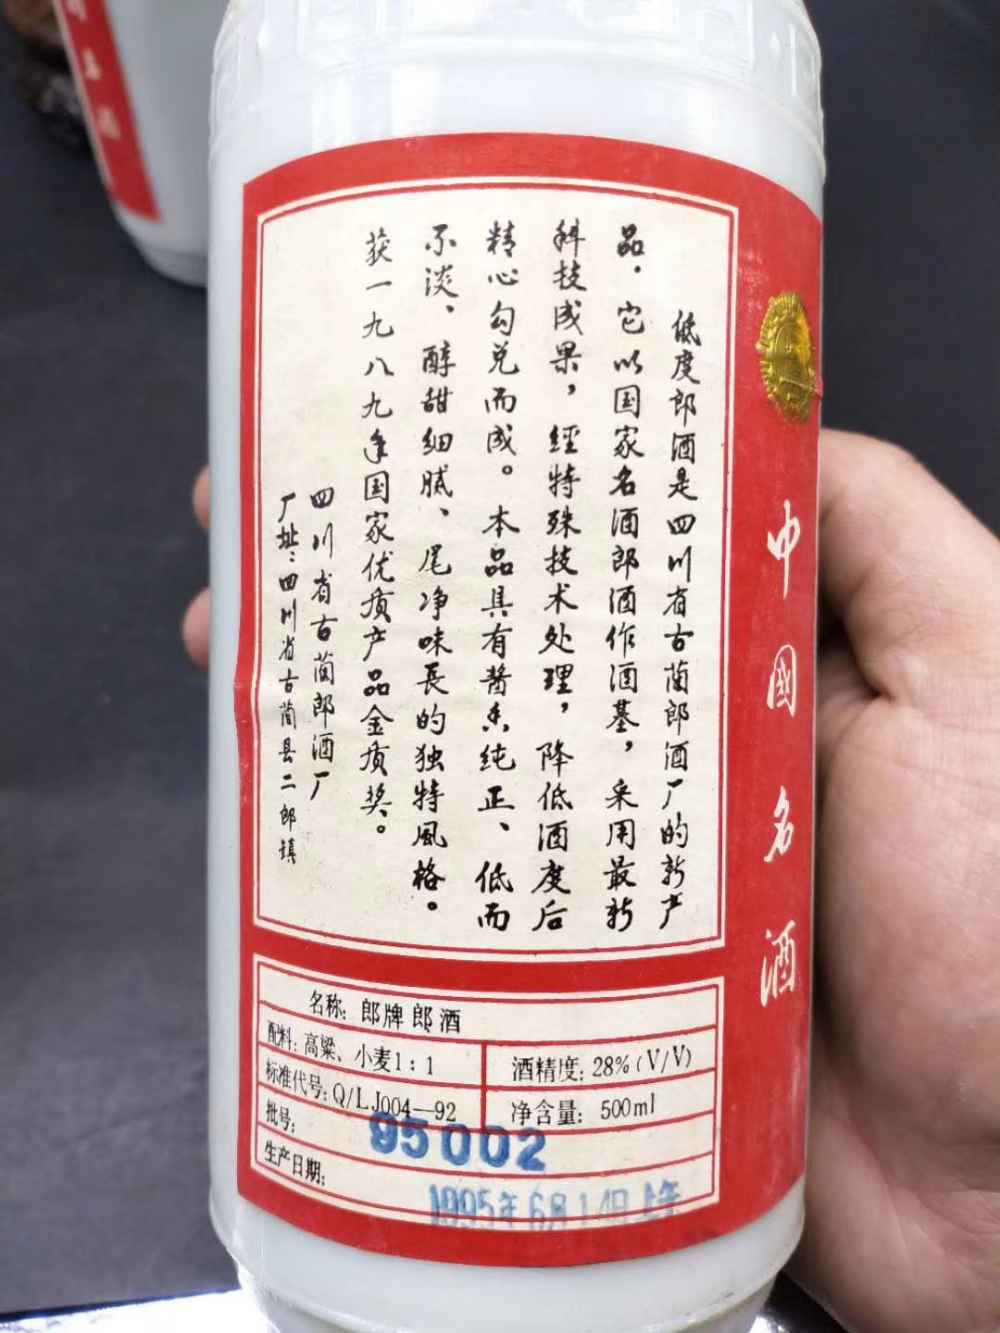 低度郎酒是四川省古蔺郎酒厂的新产
品．它以国家名酒郎酒作酒基，采用最新
科技成果，經特殊技术处理，降低酒度后
精心勾兑而成。本品具有酱香纯正、低而
不淡、醇甜细腻、尾净味長的独特風格。
获一九八九年国家优质产品金质奖。
四川省古蔺郎酒厂
厂址：四川省古蔺县二郎镇
中國名酒
名称：郎牌郎酒
配料：高粱、小麦1：1
酒精度：28%(V/V)
标准代号：Q/LJ004—92
净含量：500ml
批号：95002
生产日期：1995年6月14日上午